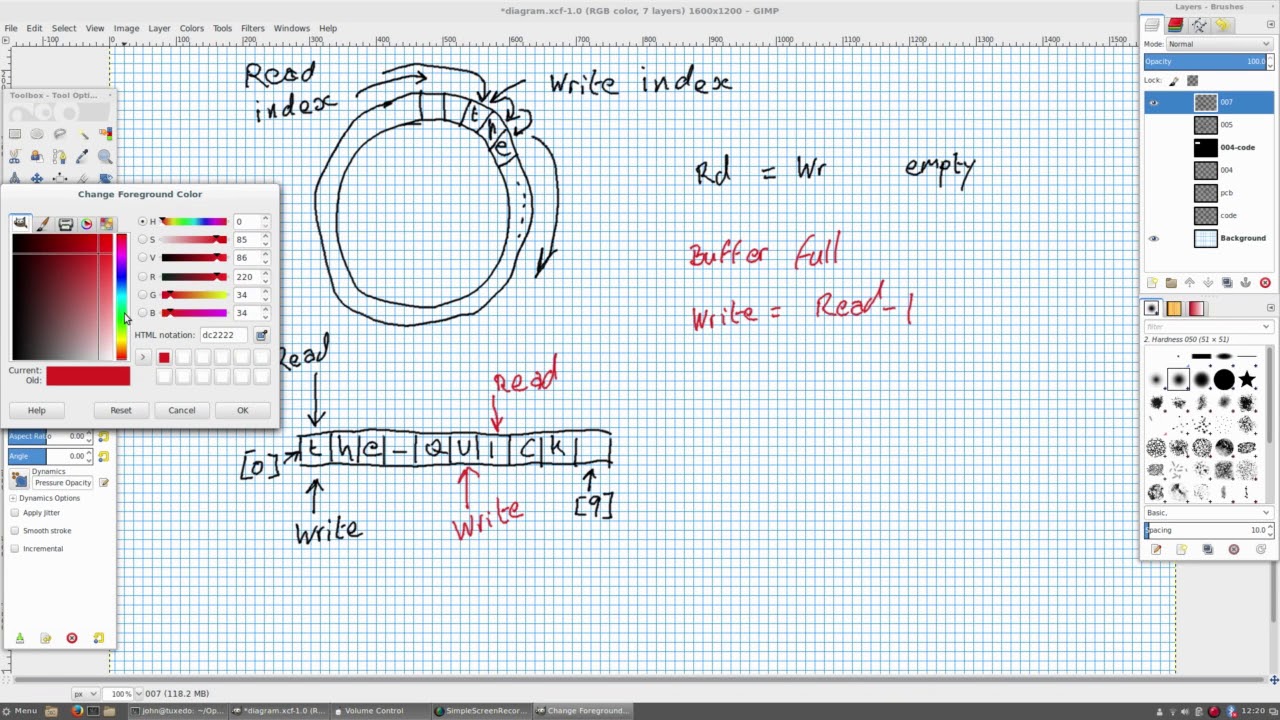 *diagram.xcf-1.0 (RGB color, 7 layers) 1600x1200 – GIMP
File Edit Select View Image Layer Colors Tools Filters Windows Help
Toolbox - Tool Opti...
Change Foreground Color
H 0
S 85
V 86
R 220
G 34
B 34
HTML notation: dc2222
Current:
Old:
Help Reset Cancel OK
Aspect Ratio 0.00
Angle 0.00
Dynamics
Pressure Opacity
Dynamics Options
Apply Jitter
Smooth stroke
Incremental
Read
index
Write index
t
h
e
Rd = Wr empty
Buffer full
Write = Read-1
Read
Read
[0] t h e - Q U I C K
[9]
Write
Write
Layers - Brushes
Mode: Normal
Opacity 100.0
Lock:
007
005
004-code
004
pcb
code
Background
filter
2. Hardness 050 (51 × 51)
Basic.
Spacing 10.0
px 100% 007 (118.2 MB)
Menu john@tuxedo: ~/Op... *diagram.xcf-1.0 (R... Volume Control SimpleScreenRecor... Change Foreground... 12:20